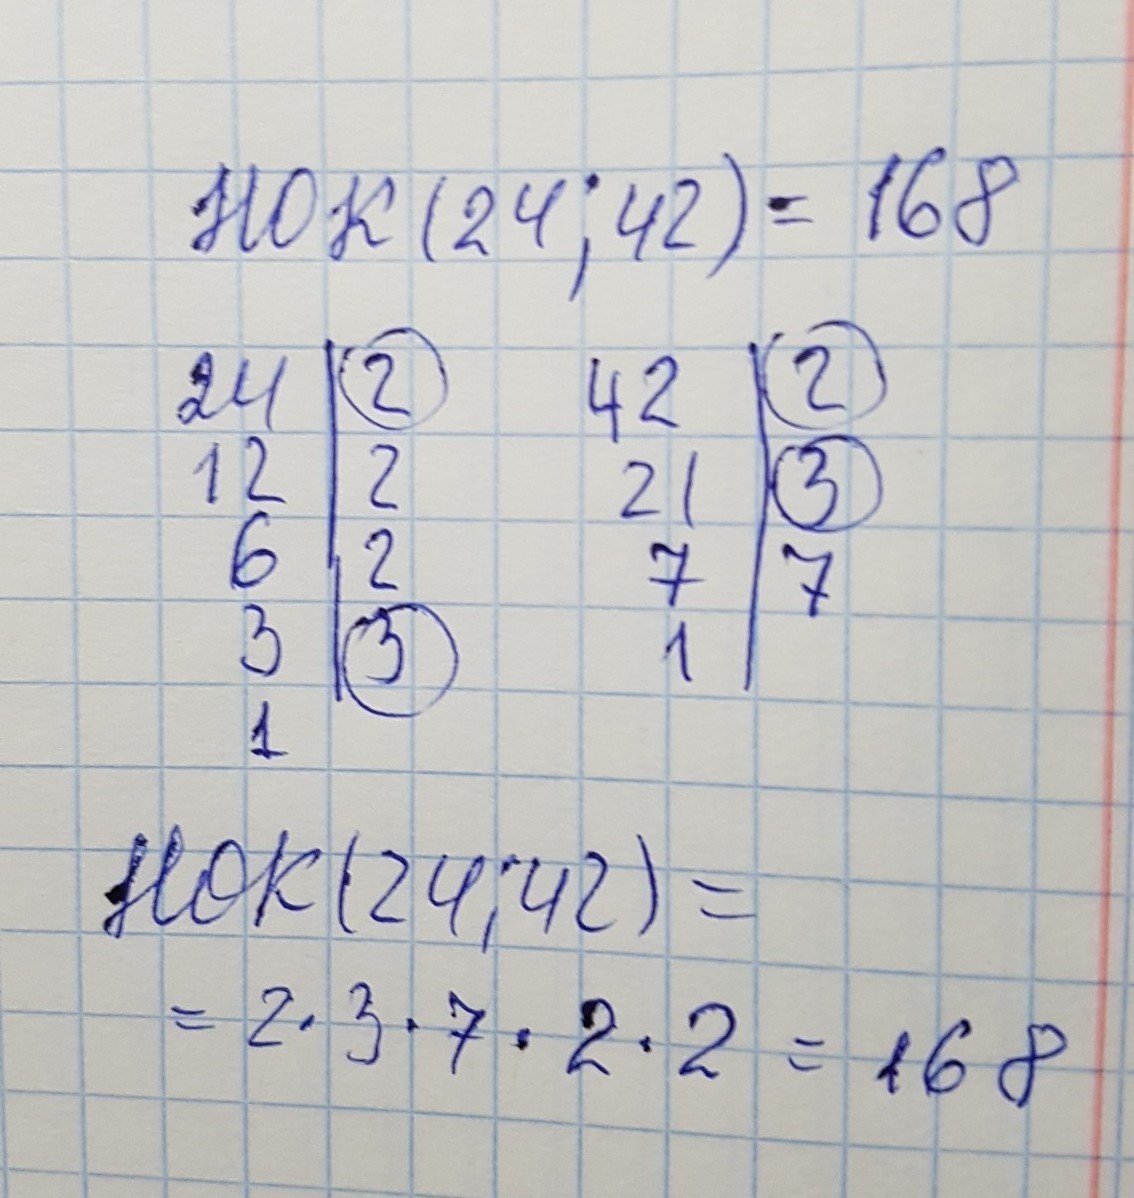 НОК(24;42)= 168
24 | 2 42 | 2
12 | 2 21 | 3
6 | 2 7 | 7
3 | 3 1
1
НОК(24;42) =
= 2·3·7·2·2 = 168